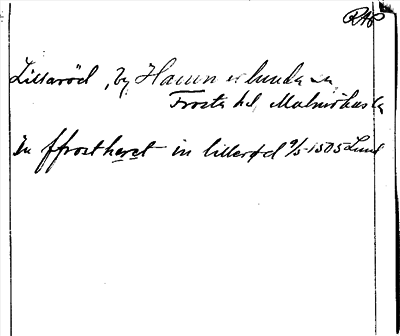 RAP
Lillaröd, by Hammarlunda sn
Frosta hd, Malmöhus la
In ffrostheret in lillerød 9/5 1505 Lund